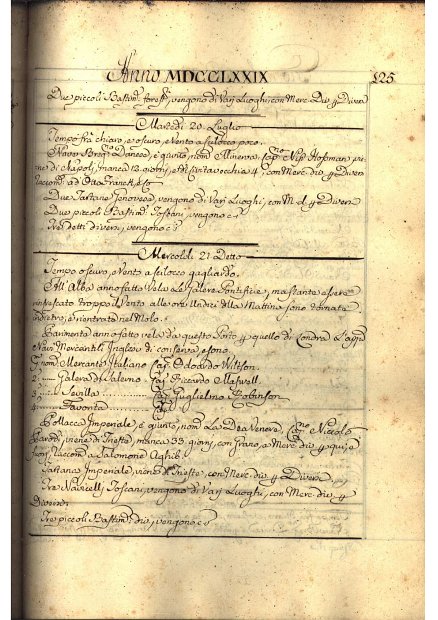 Anno MDCCLXXIX 125
Due piccoli Bastim.ti forest.i, vengono di Varj Luoghi, con Merc. Div. p Diversi
Martedì 20 Luglio
Tempo frà chiaro, e oscuro, e Vento a scilocco poco.
Nave Brig.no Danese, è giunto, nom.
di Napoli, manca 13. giorni, e di Civitavecchia 4., con Merc. div. p Diversi
raccom. ad Otto Franck, e C.o
Due Tartane Genovesi, vengono di Varj Luoghi, con M. d. p Diversi
Due piccoli Bastim.ti Toscani, vengono c s
Tre detti diversi, vengono c s
Mercoldì 21 Detto
Tempo oscuro, e Vento a scilocco gagliardo.
All' Alba anno fatto Vela le Galere Pontificie, ma stante essere
rinfrescato troppo il Vento alle ore Undici della Mattina sono tornate
indietro, e rientrate nel Molo.
Parimente anno fatto vela da questo Porto p quello di Londra l'app.e
Navi Mercantili Inglesi di conserva e sono
nom. Mercante Italiano Cap. Odoardo Wilson.
2. Galera di Salerno Cap. Riccardo Maxwell.
3. Sivilla Cap. Guglielmo Robinson.
4. Favorita
Pollacca Imperiale, è giunta, nom. La Dea Venere, Cap.no Niccolò
viene di Trieste, manca 33. giorni, con grano, e Merc. div. p qui, e
fuori, raccom. a Salomone Aghib.
Tartana Imperiale, viene di Trieste, con Merc. div. p Diversi
Tre Navicelli Toscani, vengono di Varj Luoghi, con Merc. div. p
Diversi.
Tre piccoli Bastim.ti div., vengono c s